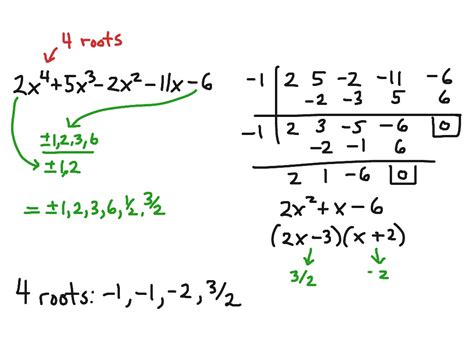 4 roots
2x⁴+5x³-2x²-11x-6
±1,2,3,6
±1,2
= ±1,2,3,6,1/2,3/2
-1 | 2 5 -2 -11 -6
-2 -3 5 6
-1 | 2 3 -5 -6 0
-2 -1 6
2 1 -6 0
2x²+x-6
(2x-3)(x+2)
3/2 -2
4 roots: -1,-1,-2,3/2